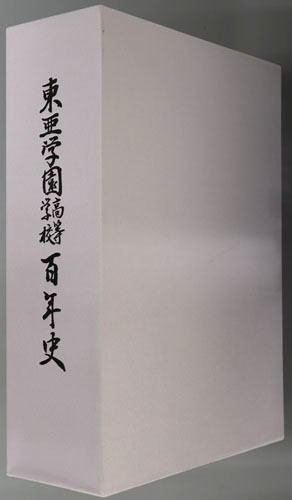 東亜学園高等学校百年史